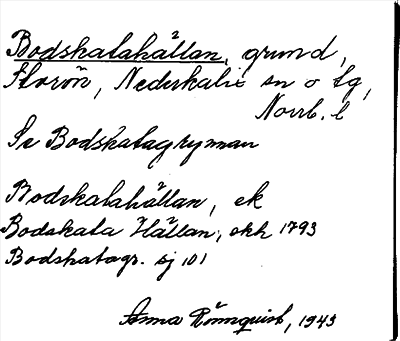 Bodskatahällan, grund,
Storön, Nederkalix sn o tg,
Norrb. l
Se Bodskatagrynnan
Bodskatahällan, ek
Bodskata Hällan, ekh 1793
Bodskatagr. sj 101
Anna Rönnquist, 1943